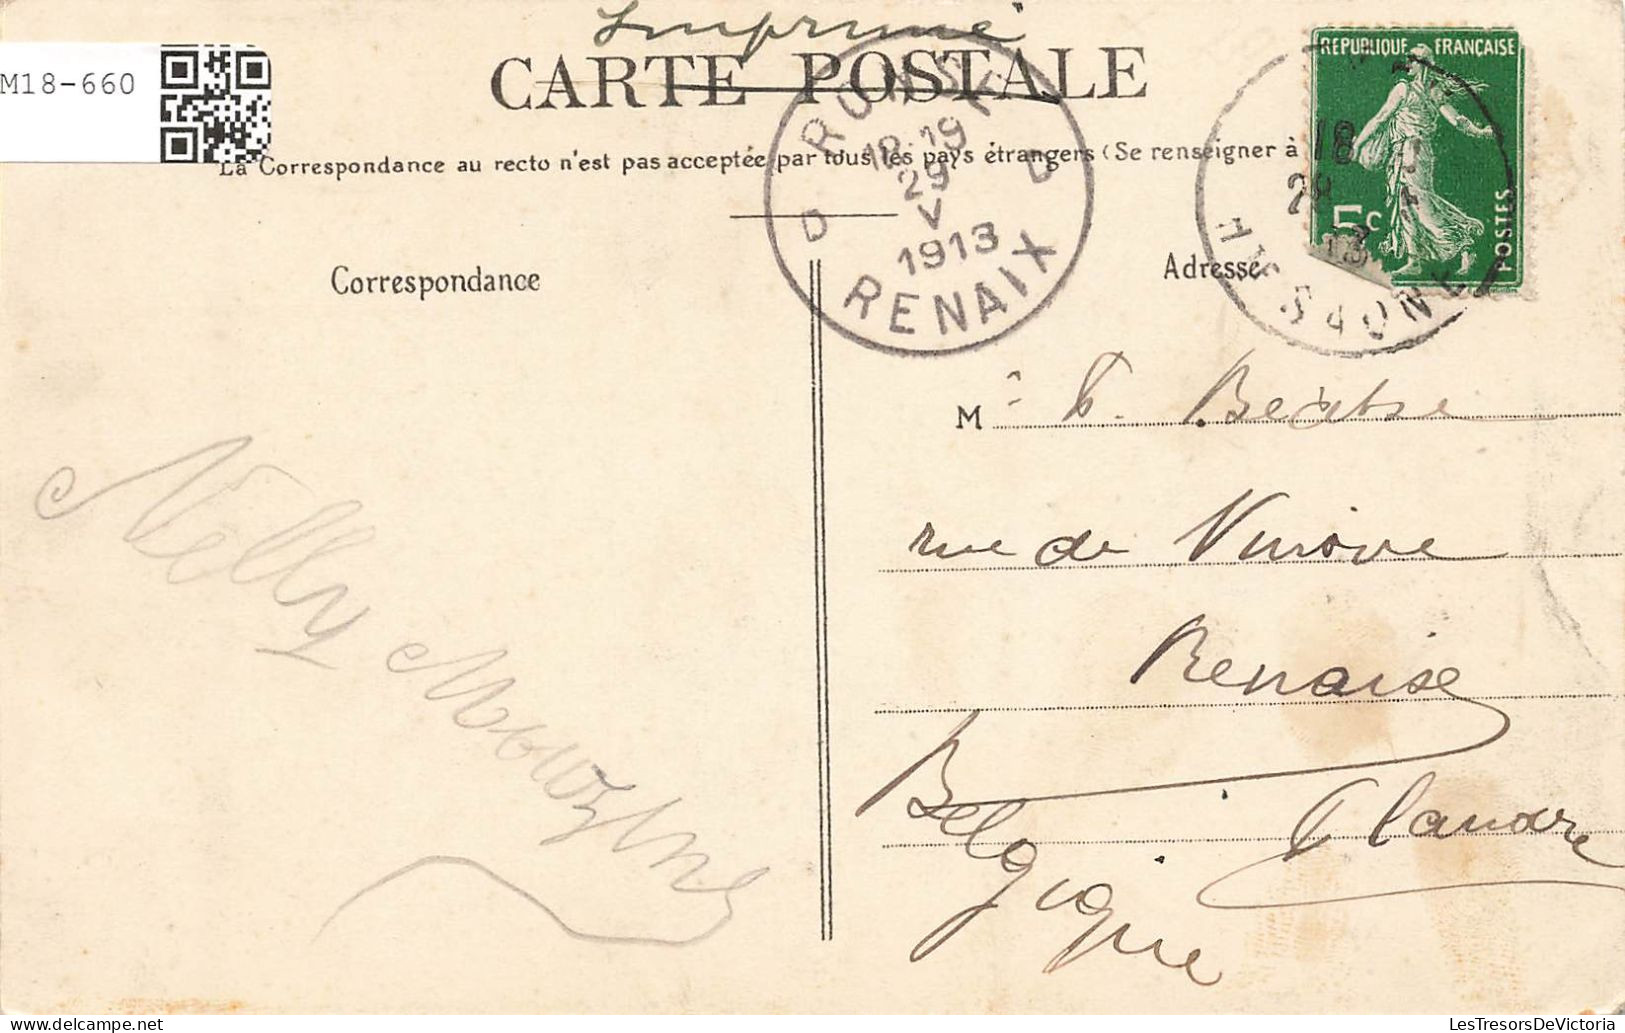 Imprimé
M18-660
CARTE POSTALE
La Correspondance au recto n'est pas acceptée par tous les pays étrangers (Se renseigner à
REPUBLIQUE FRANÇAISE
5c
POSTES
18
28
13
HTE SAONE
RONSE
18-19
29
V
1913
D D
RENAIX
Correspondance
Adresse
M
rue de
Renaise
Belgique
Flandre
Nelly
LesTresorsDeVictoria